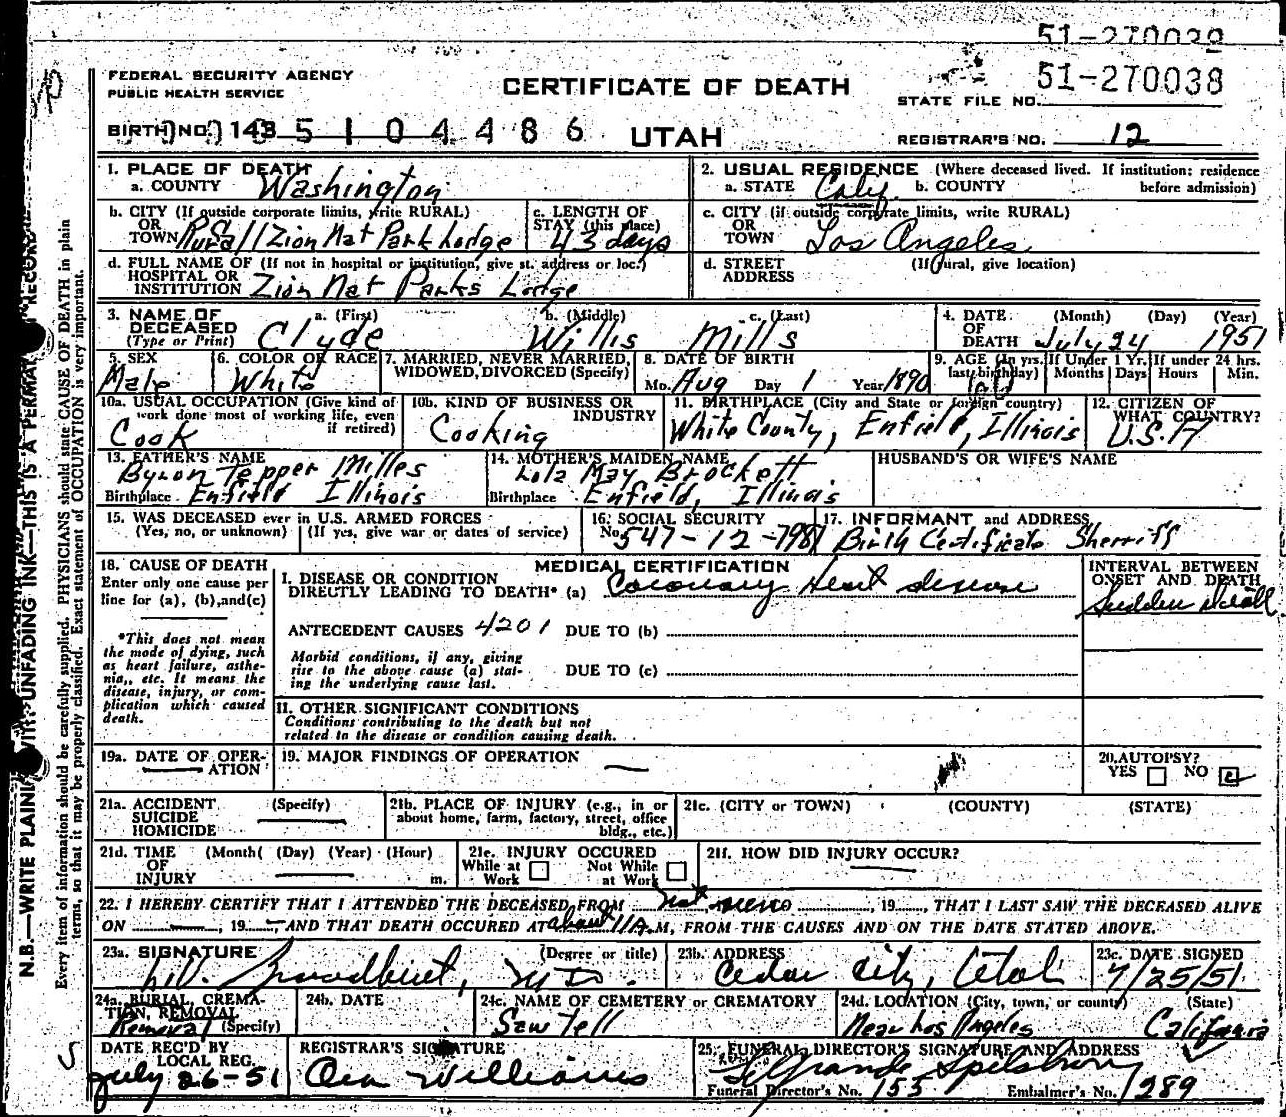 51-270039
51-270038
FEDERAL SECURITY AGENCY
PUBLIC HEALTH SERVICE
CERTIFICATE OF DEATH
STATE FILE NO.
BIRTH NO. 143 5104486
UTAH
REGISTRAR'S NO. 12
1. PLACE OF DEATH
a. COUNTY Washington
2. USUAL RESIDENCE (Where deceased lived. If institution: residence before admission)
a. STATE Calif. b. COUNTY
b. CITY (If outside corporate limits, write RURAL) OR TOWN Rural/Zion Nat Park Lodge
c. LENGTH OF STAY (this place) 43 days
c. CITY (if outside corporate limits, write RURAL) OR TOWN Los Angeles
d. FULL NAME OF (If not in hospital or institution, give st. address or loc.) HOSPITAL OR INSTITUTION Zion Nat Parks Lodge
d. STREET ADDRESS (If rural, give location)
3. NAME OF DECEASED (Type or Print)
a. (First) Clyde b. (Middle) Willis c. (Last) Mills
4. DATE OF DEATH (Month) (Day) (Year) July 24 1951
5. SEX Male
6. COLOR OF RACE White
7. MARRIED, NEVER MARRIED, WIDOWED, DIVORCED (Specify)
8. DATE OF BIRTH Mo. Aug Day 1 Year 1890
9. AGE (In yrs. last birthday) 60
If Under 1 Yr. Months Days
If under 24 hrs. Hours Min.
10a. USUAL OCCUPATION (Give kind of work done most of working life, even if retired) Cook
10b. KIND OF BUSINESS OR INDUSTRY Cooking
11. BIRTHPLACE (City and State or foreign country) White County, Enfield, Illinois
12. CITIZEN OF WHAT COUNTRY? U.S.A
13. FATHER'S NAME Byron Tepper Milles
Birthplace Enfield Illinois
14. MOTHER'S MAIDEN NAME Lola May Brockett
Birthplace Enfield, Illinois
HUSBAND'S OR WIFE'S NAME
15. WAS DECEASED ever in U.S. ARMED FORCES
(Yes, no, or unknown) (If yes, give war or dates of service)
16. SOCIAL SECURITY No. 547-12-7981
17. INFORMANT and ADDRESS Birth Certificate Sherriff
18. CAUSE OF DEATH
Enter only one cause per line for (a), (b), and (c)
*This does not mean the mode of dying, such as heart failure, asthenia,, etc. It means the disease, injury, or complication which caused death.
MEDICAL CERTIFICATION
I. DISEASE OR CONDITION DIRECTLY LEADING TO DEATH* (a) Coronary Heart disease
INTERVAL BETWEEN ONSET AND DEATH Sudden death
ANTECEDENT CAUSES 4201 DUE TO (b)
Morbid conditions, if any, giving rise to the above cause (a) stating the underlying cause last.
DUE TO (c)
II. OTHER SIGNIFICANT CONDITIONS
Conditions contributing to the death but not related to the disease or condition causing death.
19a. DATE OF OPERATION
19. MAJOR FINDINGS OF OPERATION
20. AUTOPSY? YES NO
21a. ACCIDENT SUICIDE HOMICIDE (Specify)
21b. PLACE OF INJURY (e.g., in or about home, farm, factory, street, office bldg., etc.)
21c. (CITY or TOWN) (COUNTY) (STATE)
21d. TIME OF INJURY (Month) (Day) (Year) (Hour) m.
21e. INJURY OCCURED While at Work Not While at Work
21f. HOW DID INJURY OCCUR?
22. I HEREBY CERTIFY THAT I ATTENDED THE DECEASED FROM not seen, 19, THAT I LAST SAW THE DECEASED ALIVE
ON, 19, AND THAT DEATH OCCURED AT about 11 A.M, FROM THE CAUSES AND ON THE DATE STATED ABOVE.
23a. SIGNATURE (Degree or title) Broadbent, M.D.
23b. ADDRESS Cedar City, Utah
23c. DATE SIGNED 7/25/51
24a. BURIAL, CREMATION, REMOVAL (Specify) Removal
24b. DATE
24c. NAME OF CEMETERY or CREMATORY Sawtell
24d. LOCATION (City, town, or county) (State) Near Los Angeles California
DATE REC'D BY LOCAL REG. July 26-51
REGISTRAR'S SIGNATURE Ora Williams
25. FUNERAL DIRECTOR'S SIGNATURE AND ADDRESS LaGrande Spilsbury
Funeral Director's No. 155 Embalmer's No. 289
N.B.—WRITE PLAINLY WITH UNFADING INK—THIS IS A PERMANENT RECORD
Every item of information should be carefully supplied. PHYSICIANS should state CAUSE OF DEATH in plain
terms, so that it may be properly classified. Exact statement of OCCUPATION is very important.